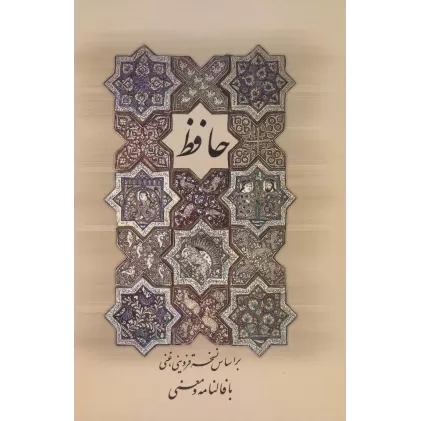 حافظ
براساس نسخهٔ قزوینی، غنی
با فالنامه و معنی